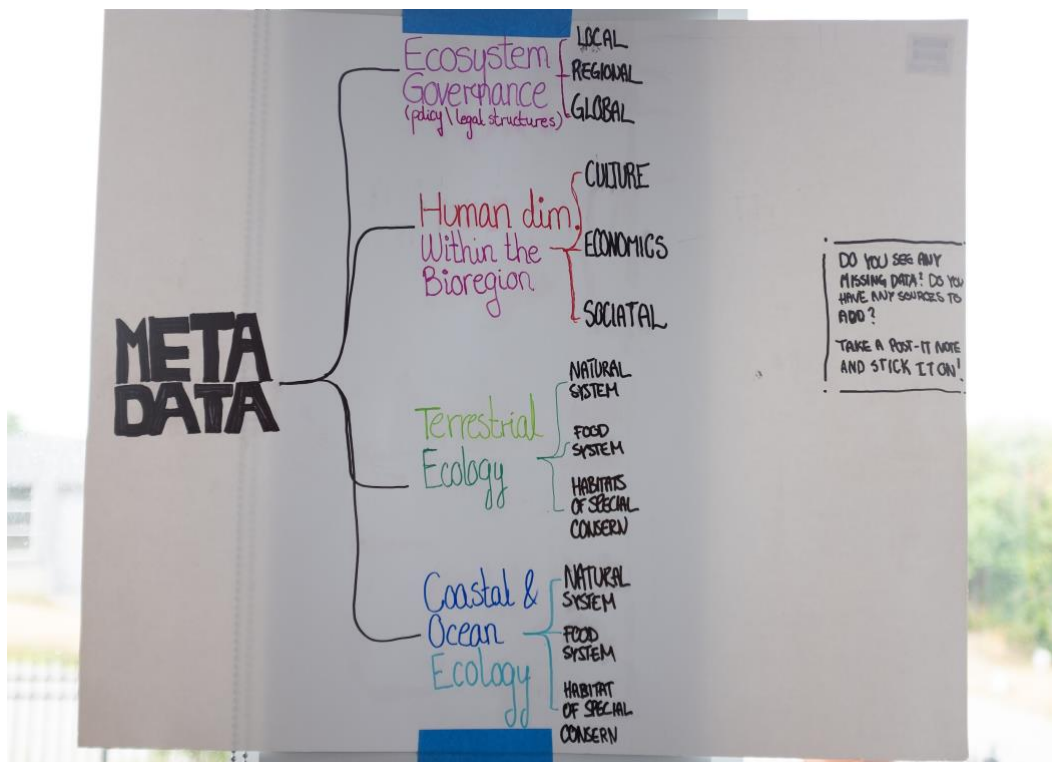 META
DATA
Ecosystem
Governance
(policy\legal structures)
LOCAL
REGIONAL
GLOBAL
Human dim.
Within the
Bioregion
CULTURE
ECONOMICS
SOCIATAL
Terrestrial
Ecology
NATURAL
SYSTEM
FOOD
SYSTEM
HABITATS
OF SPECIAL
CONSERN
Coastal &
Ocean
Ecology
NATURAL
SYSTEM
FOOD
SYSTEM
HABITAT
OF SPECIAL
CONSERN
DO YOU SEE ANY
MISSING DATA? DO YOU
HAVE ANY SOURCES TO
ADD?
TAKE A POST-IT NOTE
AND STICK IT ON!